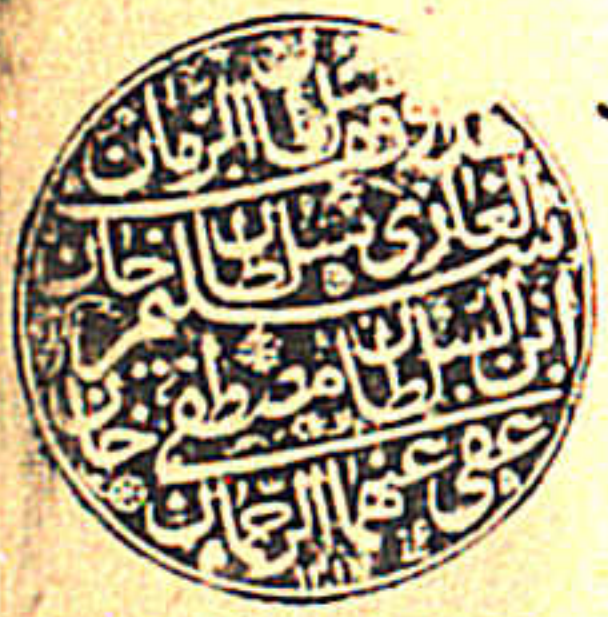 سلطان الزمان
الغازى سلطان سليم خان
ابن السلطان مصطفى خان
عفى عنهما الرحمان